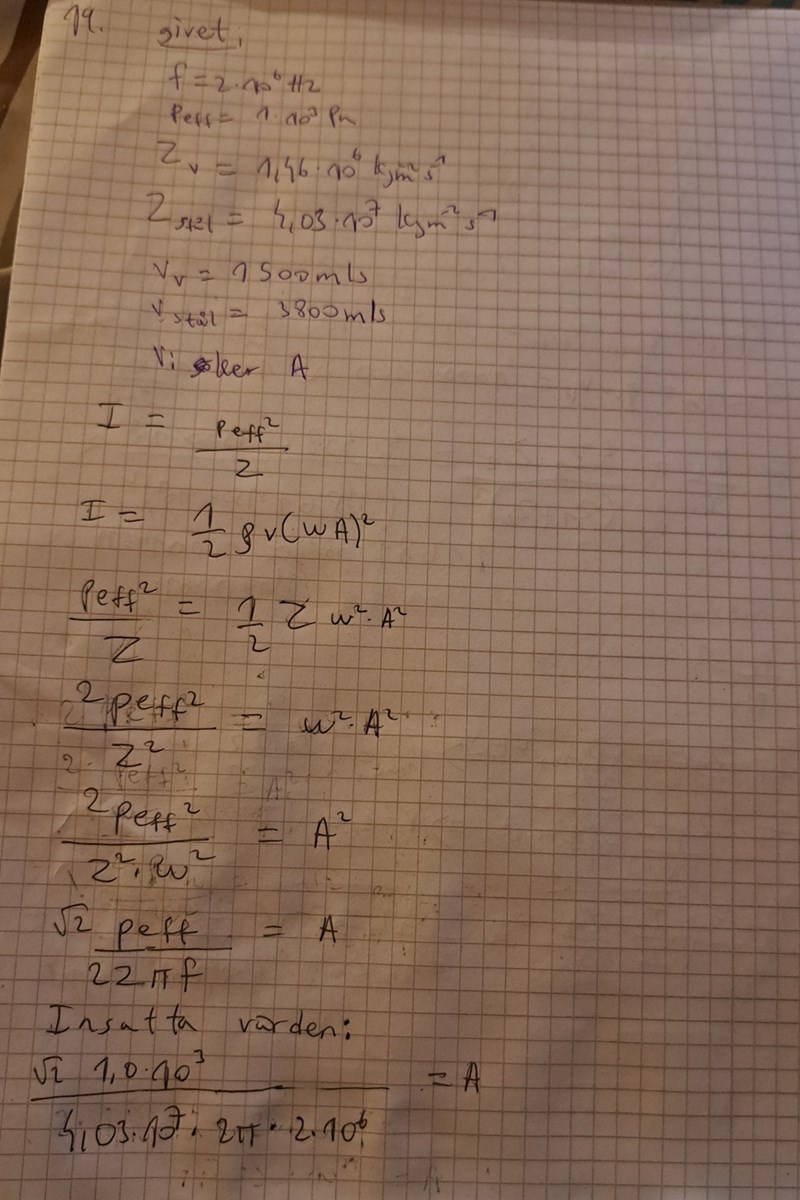 19. givet,
f = 2·10⁶ Hz
Peff = 1·10³ Pa
Z_v = 1,46·10⁶ kgm⁻²s⁻¹
Z_stål = 4,03·10⁷ kgm⁻²s⁻¹
V_v = 1500 m/s
V_stål = 5800 m/s
Vi söker A
I = Peff²/Z
I = 1/2 ρv(ωA)²
Peff²/Z = 1/2 Z ω²·A²
2Peff²/Z² = ω²·A²
2Peff²/Z²·ω² = A²
√2 Peff/2Zπf = A
Insatta värden:
√2 1,0·10³/4,03·10⁷·2π·2·10⁶ = A